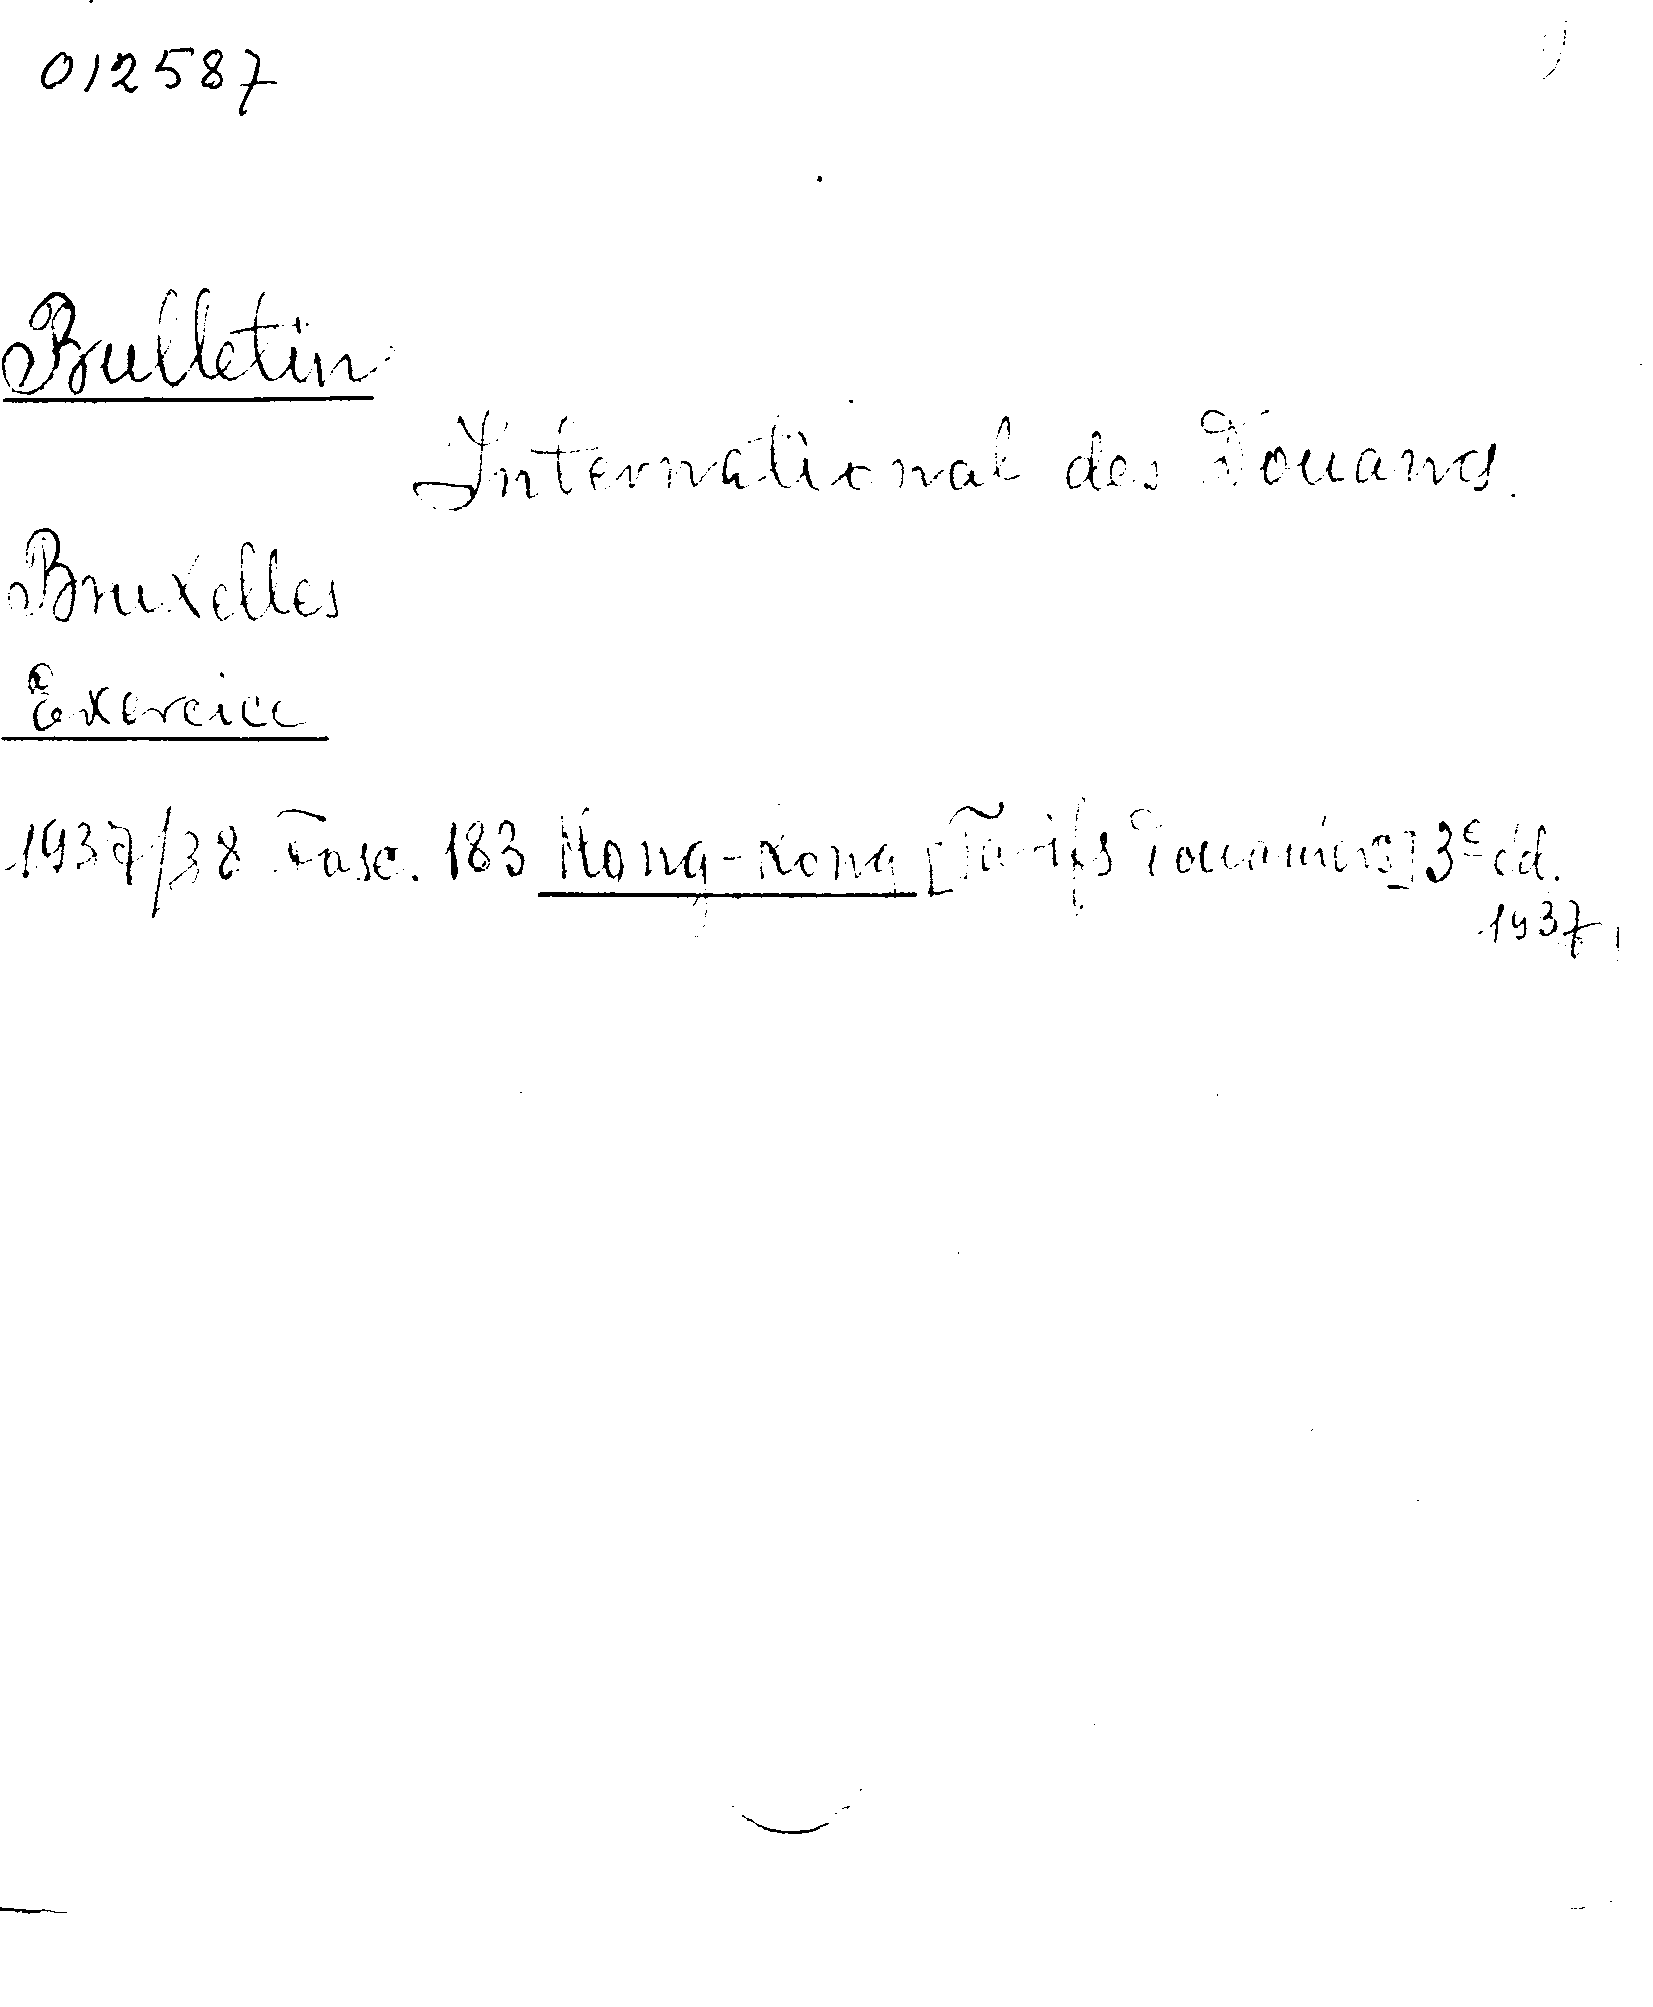 012587
Bulletin
International des Douanes.
Bruxelles
Exercice
1937/38 Fasc. 183 Hong-Kong [Tarifs Douaniers] 3e éd.
1937,